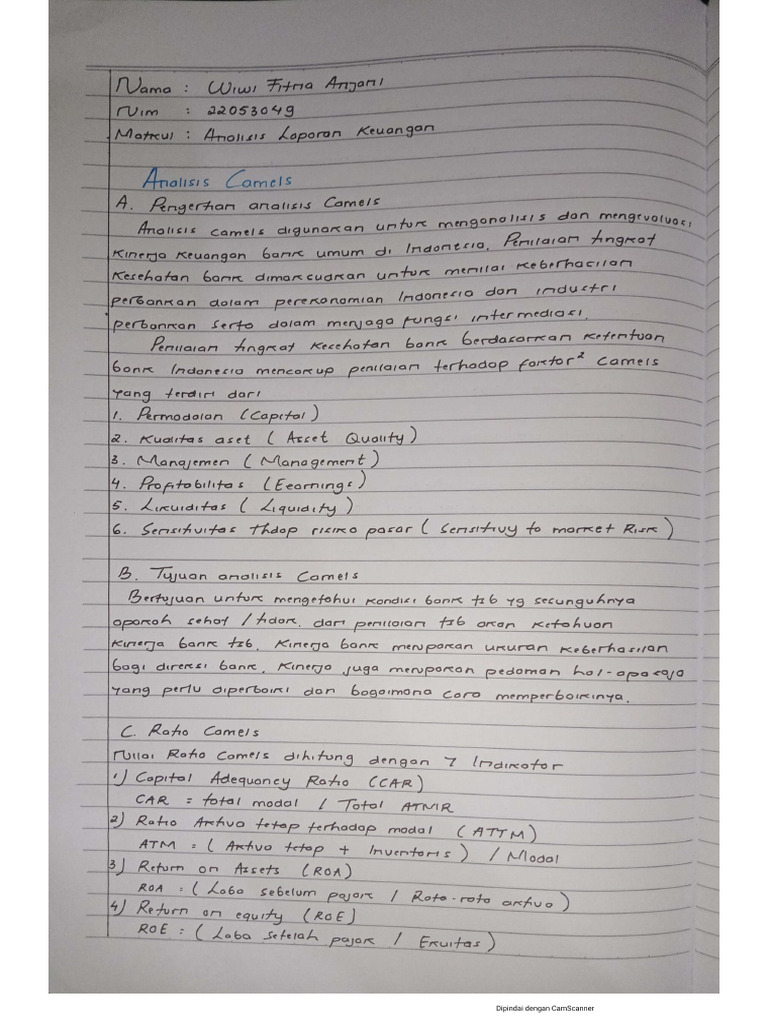 Nama : Wiwi Fitria Anjani
Nim : 22053049
Matkul : Analisis Laporan Keuangan
Analisis Camels
A. Pengertian analisis Camels
Analisis camels digunakan untuk menganalisis dan mengevaluasi
kinerja keuangan bank umum di Indonesia. Penilaian tingkat
kesehatan bank dimaksudkan untuk menilai keberhasilan
perbankan dalam perekonomian Indonesia dan industri
perbankan serta dalam menjaga fungsi intermediasi.
Penilaian tingkat kesehatan bank berdasarkan ketentuan
bank Indonesia mencakup penilaian terhadap faktor² Camels
yang terdiri dari
1. Permodalan (Capital)
2. Kualitas aset ( Asset Quality)
3. Manajemen ( Management )
4. Profitabilitas (Eearnings)
5. Likuiditas ( Liquidity)
6. Sensitivitas thdap risiko pasar ( Sensitivy to market Risk )
B. Tujuan analisis Camels
Bertujuan untuk mengetahui kondisi bank tsb yg sesunguhnya
apakah sehat / tidak. dari penilaian tsb akan ketahuan
kinerja bank tsb. Kinerja bank merupakan ukuran keberhasilan
bagi direksi bank. Kinerja juga merupakan pedoman hal-apa saja
yang perlu diperbaiki dan bagaimana cara memperbaikinya.
C. Ratio Camels
Nilai Ratio Camels dihitung dengan 7 Indikator
1) Capital Adequancy Ratio (CAR)
CAR = total modal / Total ATMR
2) Ratio Aktiva tetap terhadap modal (ATTM)
ATM = ( Aktiva tetap + Inventaris ) / Modal
3) Return on Assets (ROA)
ROA = ( Laba sebelum pajak / Rata-rata aktiva )
4) Return on equity (ROE)
ROE = ( Laba setelah pajak / Ekuitas )
Dipindai dengan CamScanner